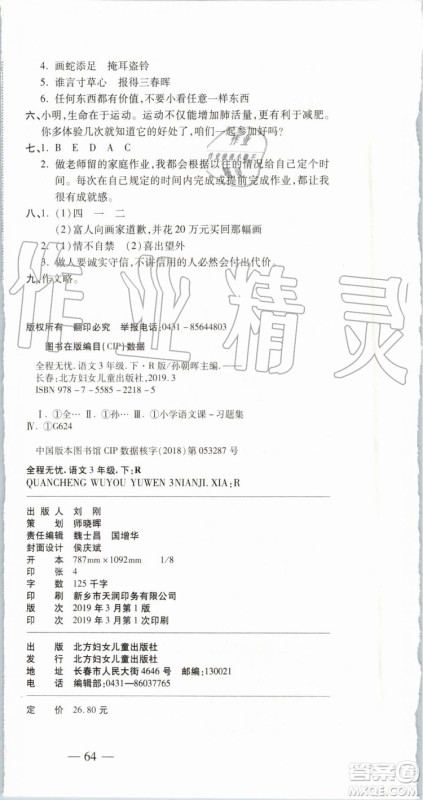 4. 画蛇添足 掩耳盗铃
5. 谁言寸草心 报得三春晖
6. 任何东西都有价值,不要小看任意一样东西
六、小明,生命在于运动。运动不仅能增加肺活量,更有利于减肥。
你多体验几次就知道它的好处了,咱们一起参加好吗?
七、1. B E D A C
2. 做老师留的家庭作业,我都会根据以往的情况给自己规定时
间。每次在自己规定的时间内完成或提前完成作业,我都会
很有成就感。
八、1. (1)四 一 二
(2)富人向画家道歉,并花 20 万元买回那幅画
2. (1)情不自禁 (2)喜出望外
3. 做人要诚实守信,不讲信用的人必然会付出代价。
九、作文略。
作业精灵
版权所有 翻印必究 举报电话:0431-85644803
图书在版编目(CIP)数据
全程无忧.语文3年级.下·R版/孙朝晖主编.—
长春:北方妇女儿童出版社,2019.3
ISBN 978-7-5585-2218-5
Ⅰ.①全… Ⅱ.①孙… Ⅲ.①小学语文课-习题集
Ⅳ.①G624
中国版本图书馆 CIP 数据核字(2018)第 053287 号
全程无忧.语文3年级.下:R
QUANCHENG WUYOU YUWEN 3NIANJI.XIA:R
出版人 刘 刚
策 划 师晓晖
责任编辑 魏士昌 国增华
封面设计 侯庆斌
开 本 787mm×1092mm 1/8
印 张 4
字 数 125 千字
印 刷 新乡市天润印务有限公司
版 次 2019 年 3 月第 1 版
印 次 2019 年 3 月第 1 次印刷
出 版 北方妇女儿童出版社
发 行 北方妇女儿童出版社
地 址 长春市人民大街 4646 号 邮编:130021
电 话 编辑部:0431-86037765
定 价 26.80 元
— 64 —
答案圈
MXQE.COM